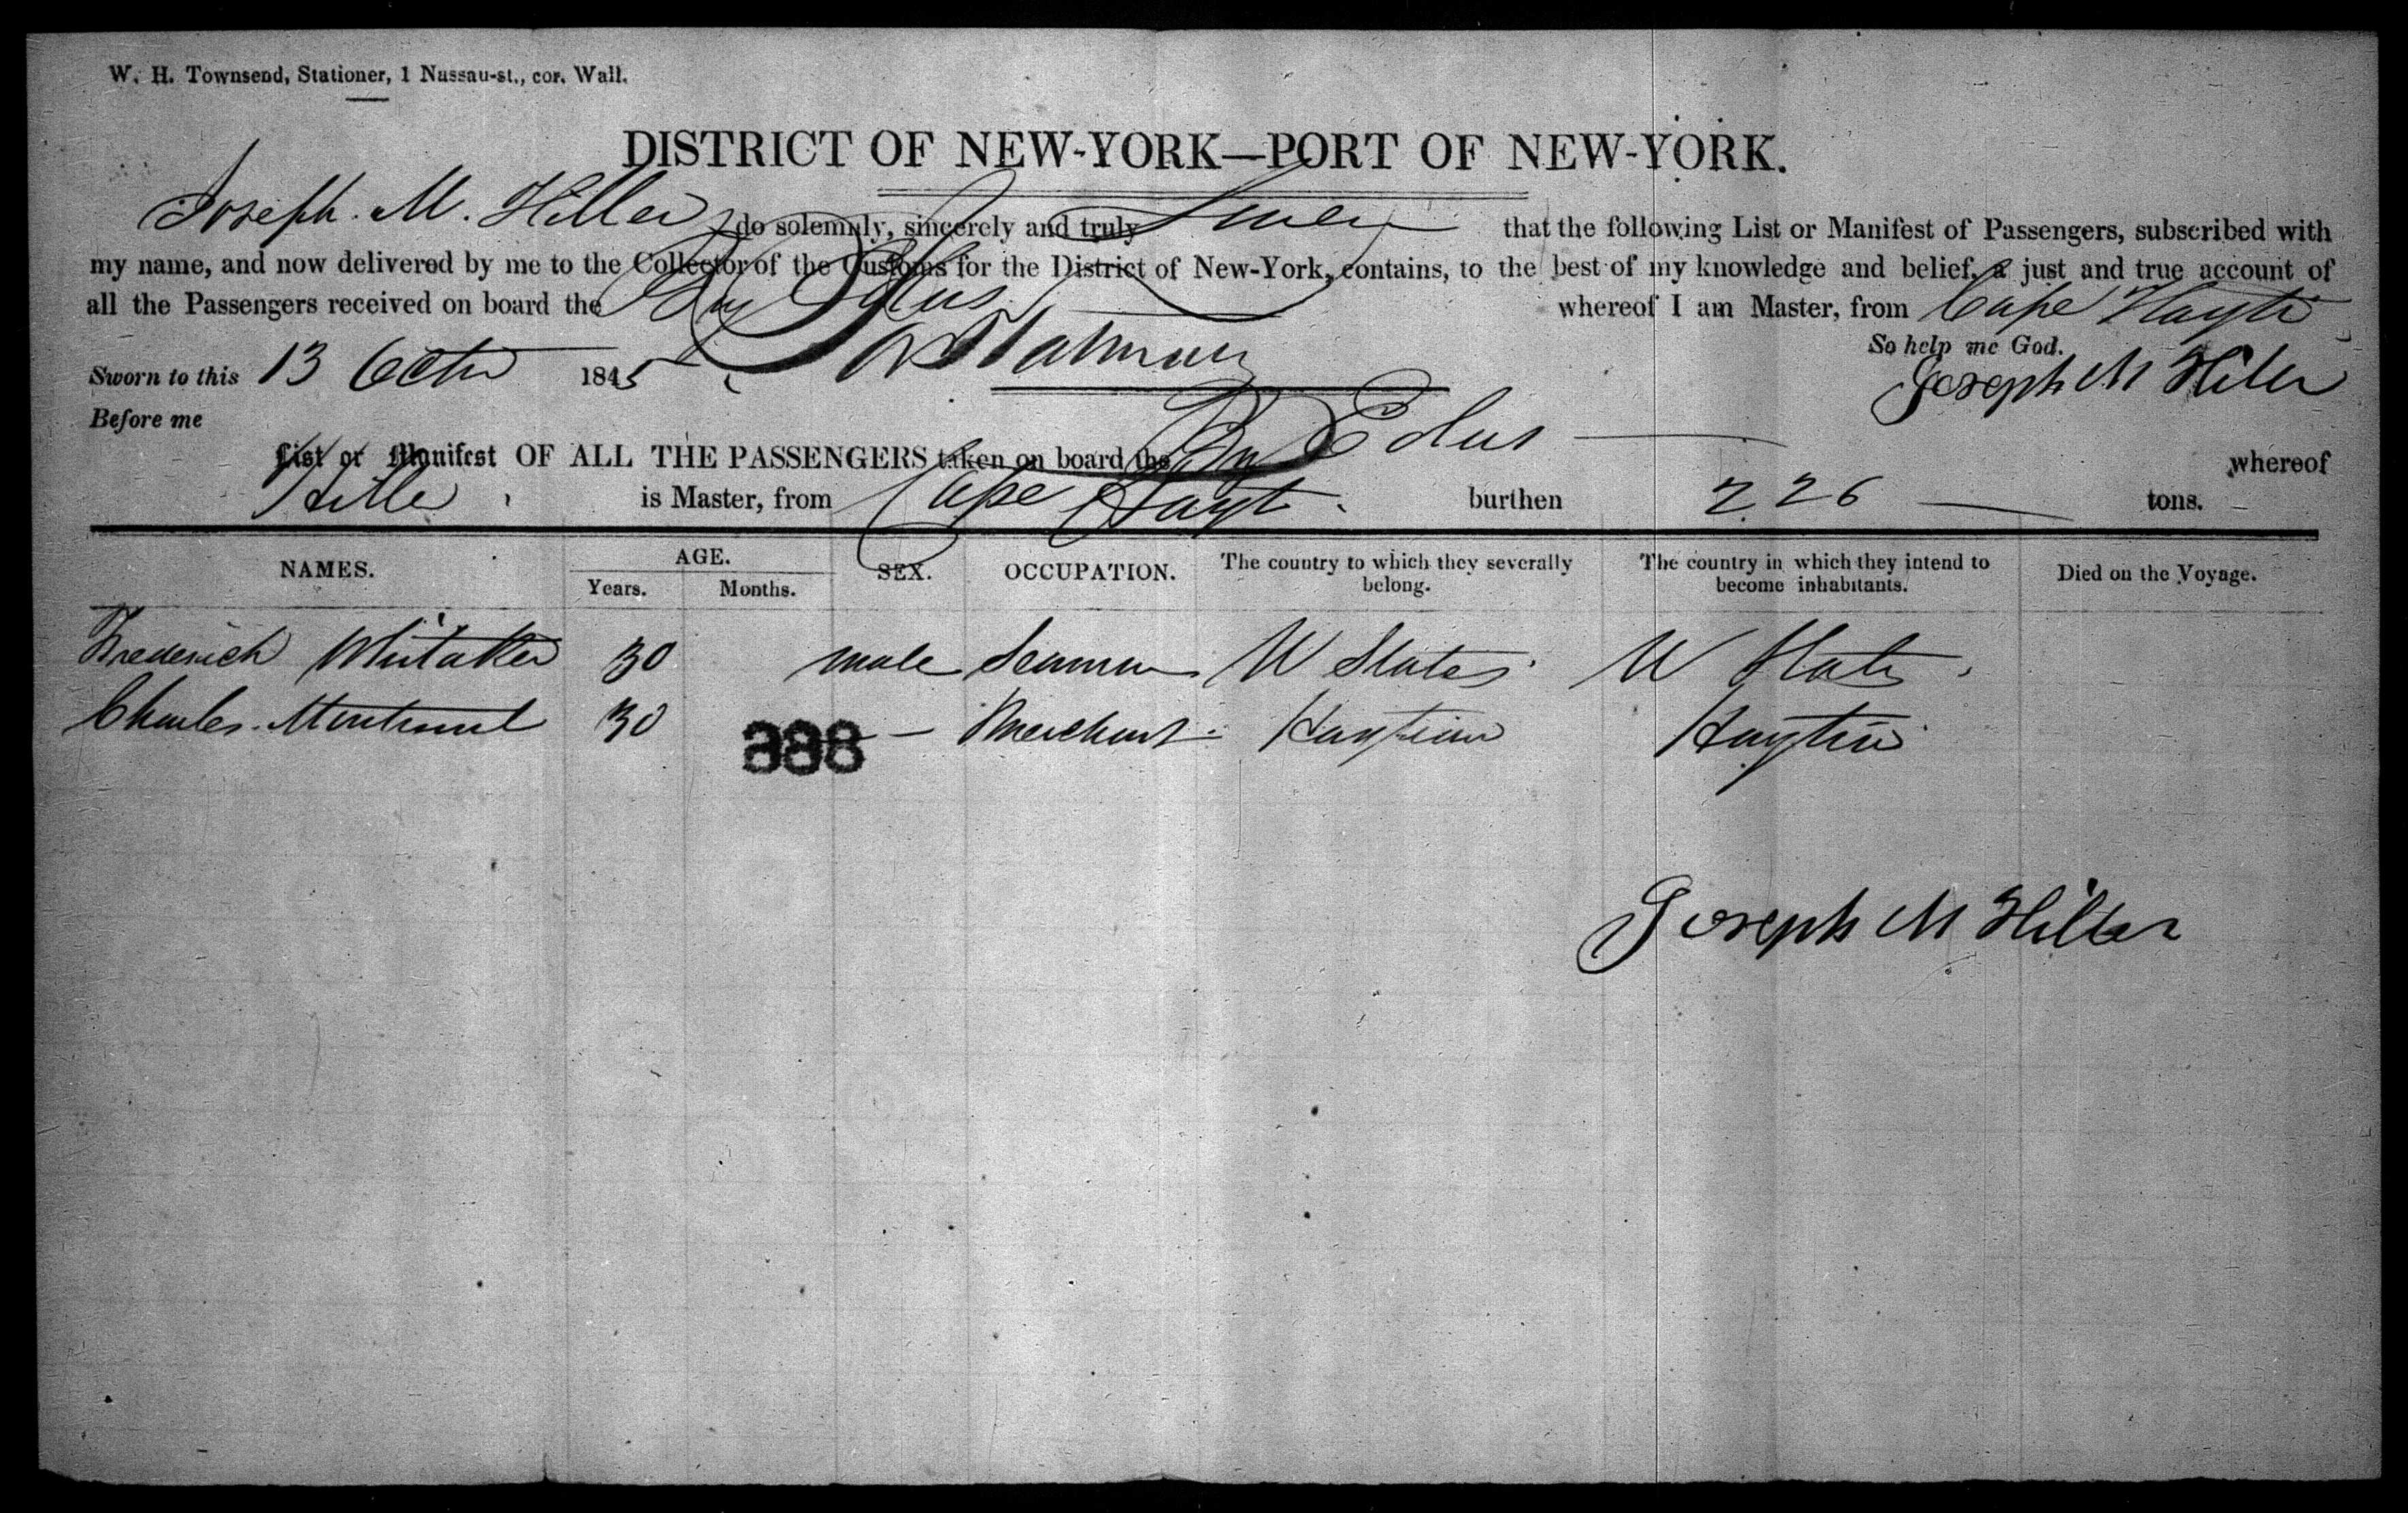 W. H. Townsend, Stationer, 1 Nassau-st., cor. Wall.
DISTRICT OF NEW-YORK—PORT OF NEW-YORK.
Joseph. M. Hiller do solemnly, sincerely and truly Swear that the following List or Manifest of Passengers, subscribed with
my name, and now delivered by me to the Collector of the Customs for the District of New-York, contains, to the best of my knowledge and belief, a just and true account of
all the Passengers received on board the whereof I am Master, from Cape Hayti
So help me God.
Sworn to this 13 Octr 1845
Joseph M Hiller
Before me
List or Manifest OF ALL THE PASSENGERS taken on board the whereof
Hiller is Master, from Cape Hayt burthen 226 tons.
NAMES. AGE. SEX. OCCUPATION. The country to which they severally belong. The country in which they intend to become inhabitants. Died on the Voyage.
Years. Months.
Frederick Whitaker 30 male Seaman U States U States
Charles 30 — Merchant Haytien Haytien
888
Joseph M Hiller